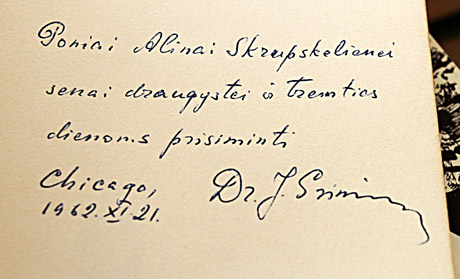 Poniai Alinai Skrupskelienei
senai draugystei ir tremties
dienoms prisiminti
Chicago,
1962.XI.21.
Dr. J.